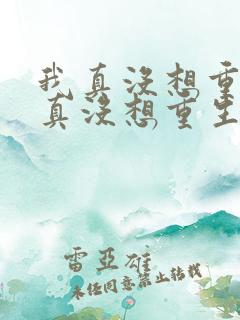 我真没想重
真没想重生
雷亞雄
未经同意禁止转载